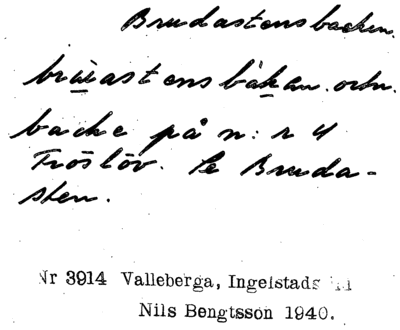 Brudastensbacken.
backe på n:r 4
Tröslöv. Se Bruda-
sten.
Nr 3914 Valleberga, Ingelstads
Nils Bengtsson 1940.